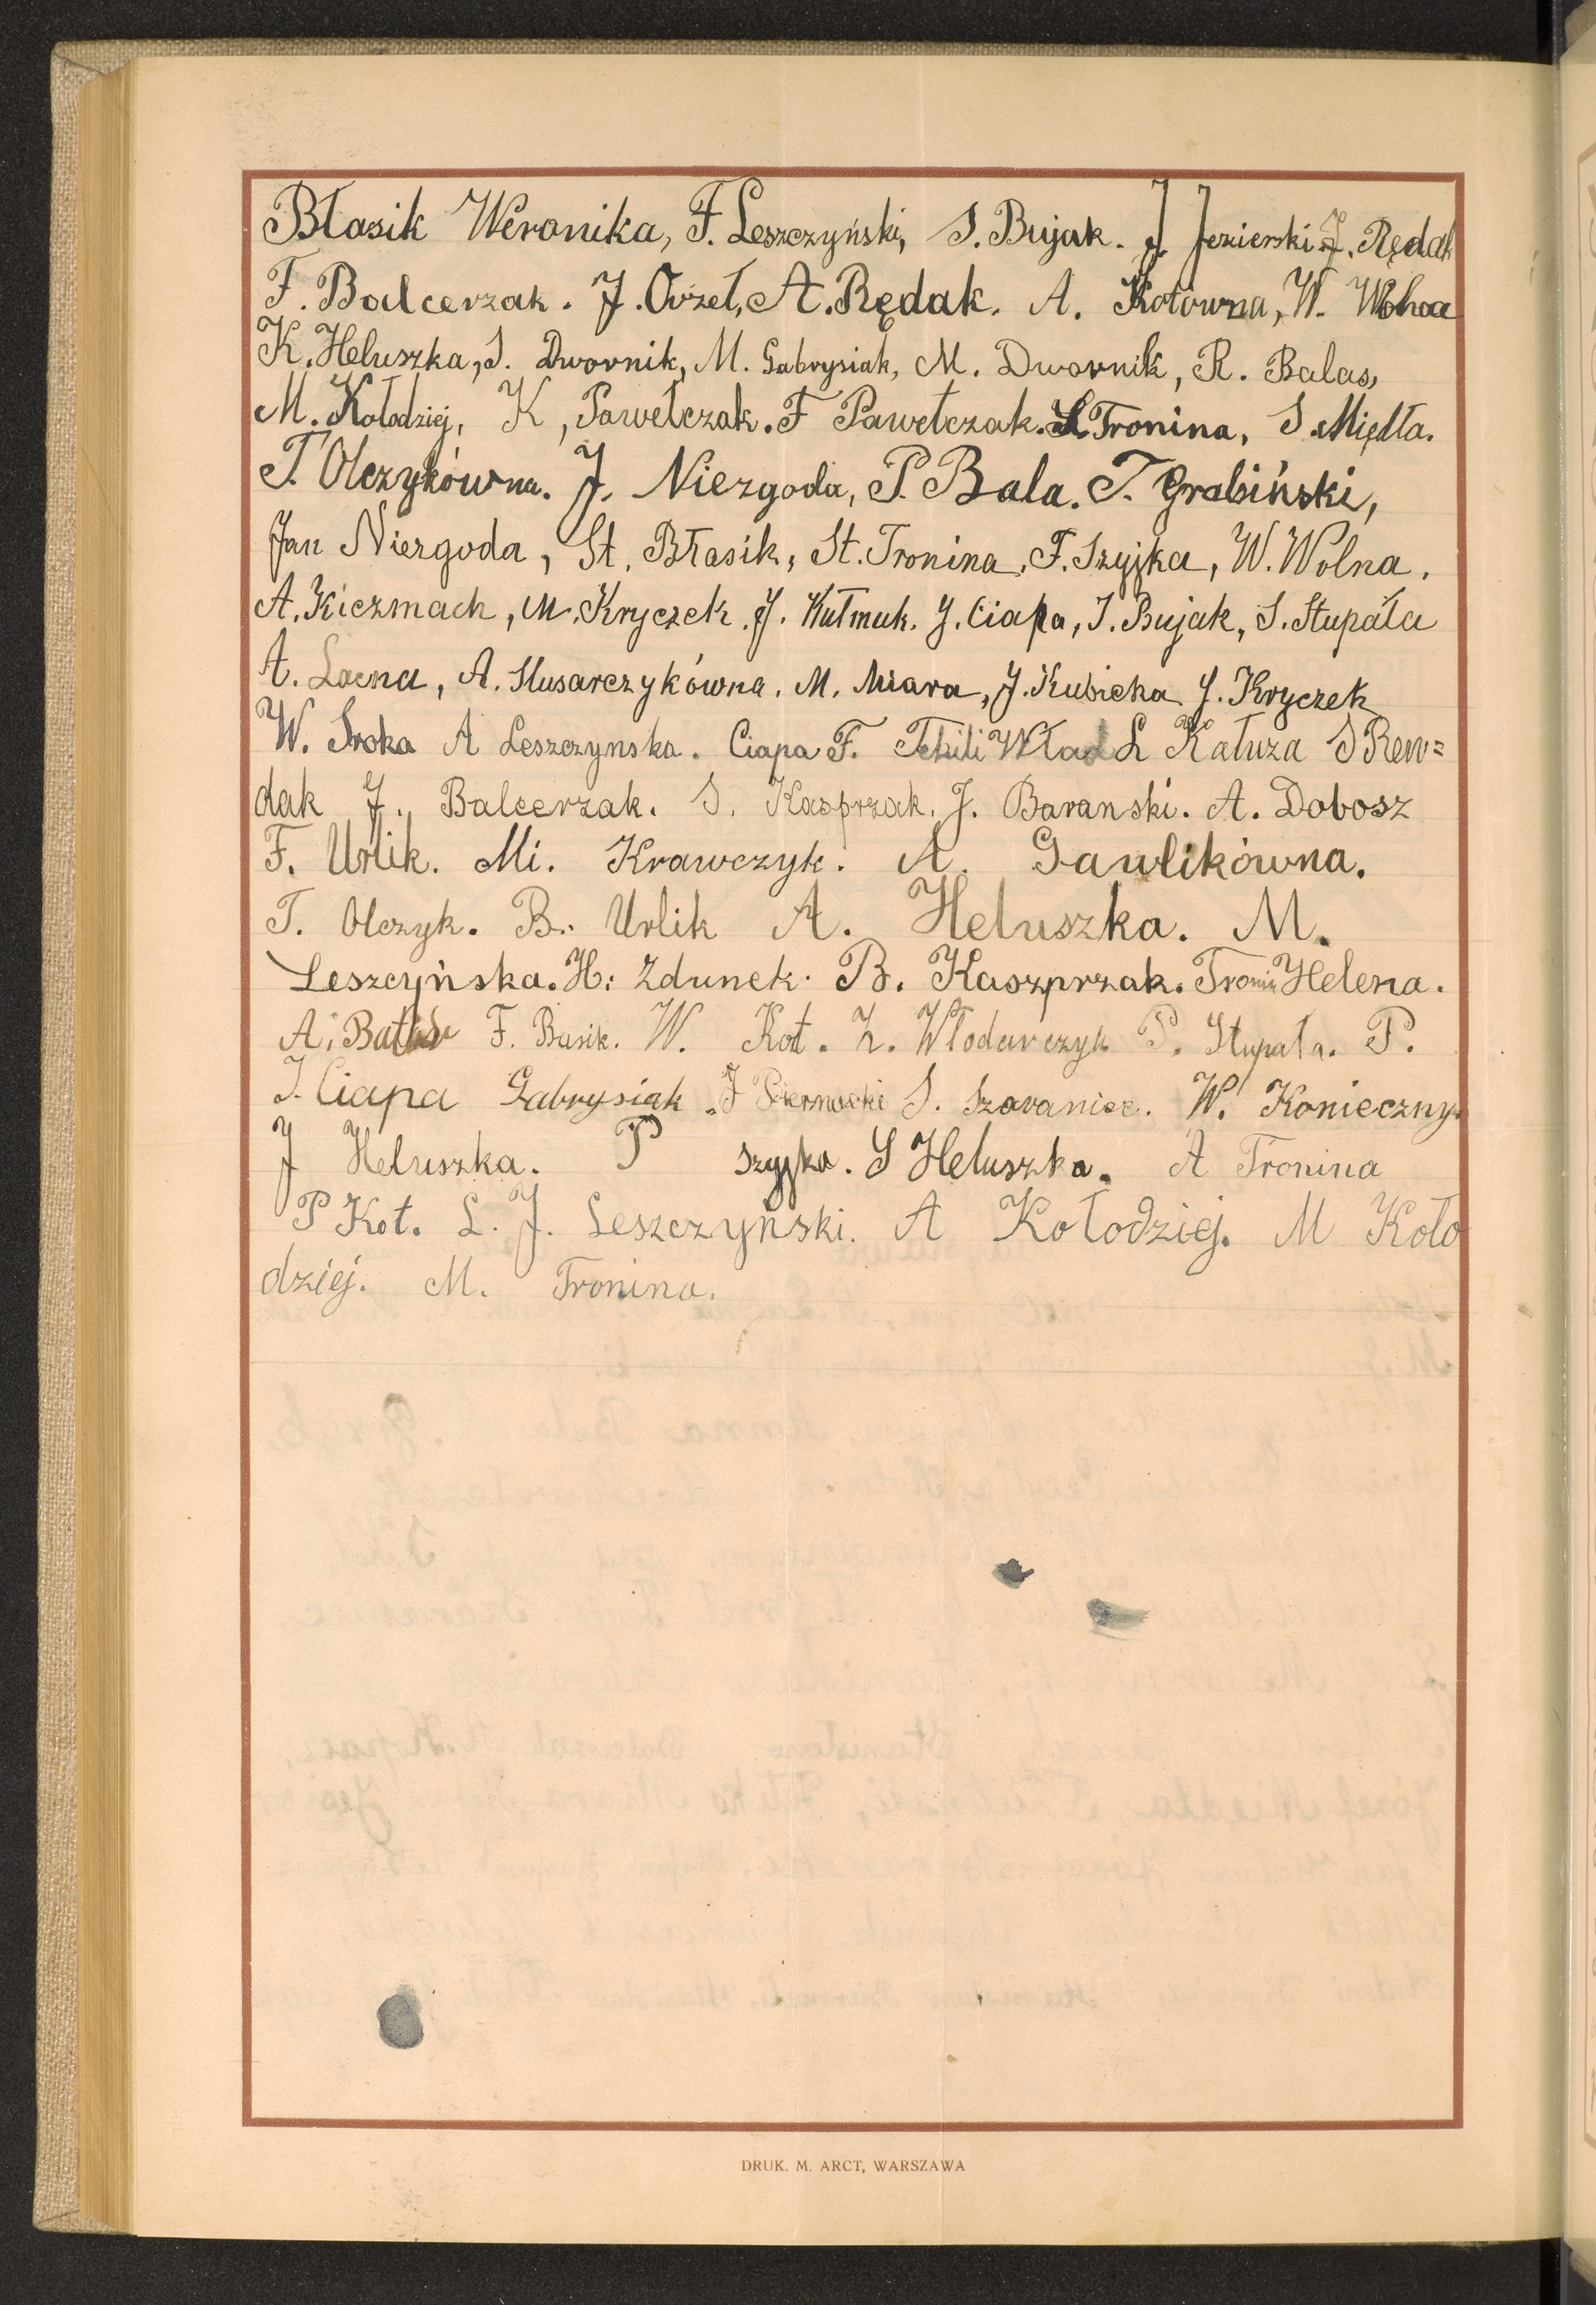 Błasik Weronika, F. Leszczyński, S. Bujak. J. Jezierski J. Rędak
F. Balcerzak. J. Orzeł, A. Rędak. A. Kotówna, W.
K. Heluszka, S. Dwornik, M. Gabrysiak, M. Dwornik, R. Balas,
M. Kołodziej, K, Pawełczak. F Pawełczak. S. Tronina, S. Międła.
T. Olczykówna. J. Niezgoda, P. Bala. T. Grabiński,
Jan Niezgoda, St. Błasik, St. Tronina, F. Szyjka, W. Wolna.
A. Kiczmach, M. Kryczek. J. Kułmuk. J. Ciapa, J. Bujak, S. Stupała
A. Łacna, A. Slusarczykówna. M. Miara, J. Kubicka J. Kryczek
W. Sroka A Leszczynska. Ciapa F. Tekili Wład L Kałuza S Ren=
dak J. Balcerzak. S. Kasprzak. J. Baranski. A. Dobosz
F. Urlik. Mi. Krawczyk. A. Gawlikówna.
T. Olczyk. B. Urlik A. Heluszka. M.
Leszcyńska. H: Zdunek. B. Kaszprzak. Tronin Helena.
A. F. Basik. W. Kot. Z. Włodarczyk P. Stupała. P.
J. Ciapa Gabrysiak J S. Szavaniec. W. Konieczny.
J Heluszka. P szyjka. S Heluszka. A Tronina
P Kot. L. J. Leszczyński. A Kołodziej. M Koło
dziej. M. Tronina.
DRUK. M. ARCT, WARSZAWA